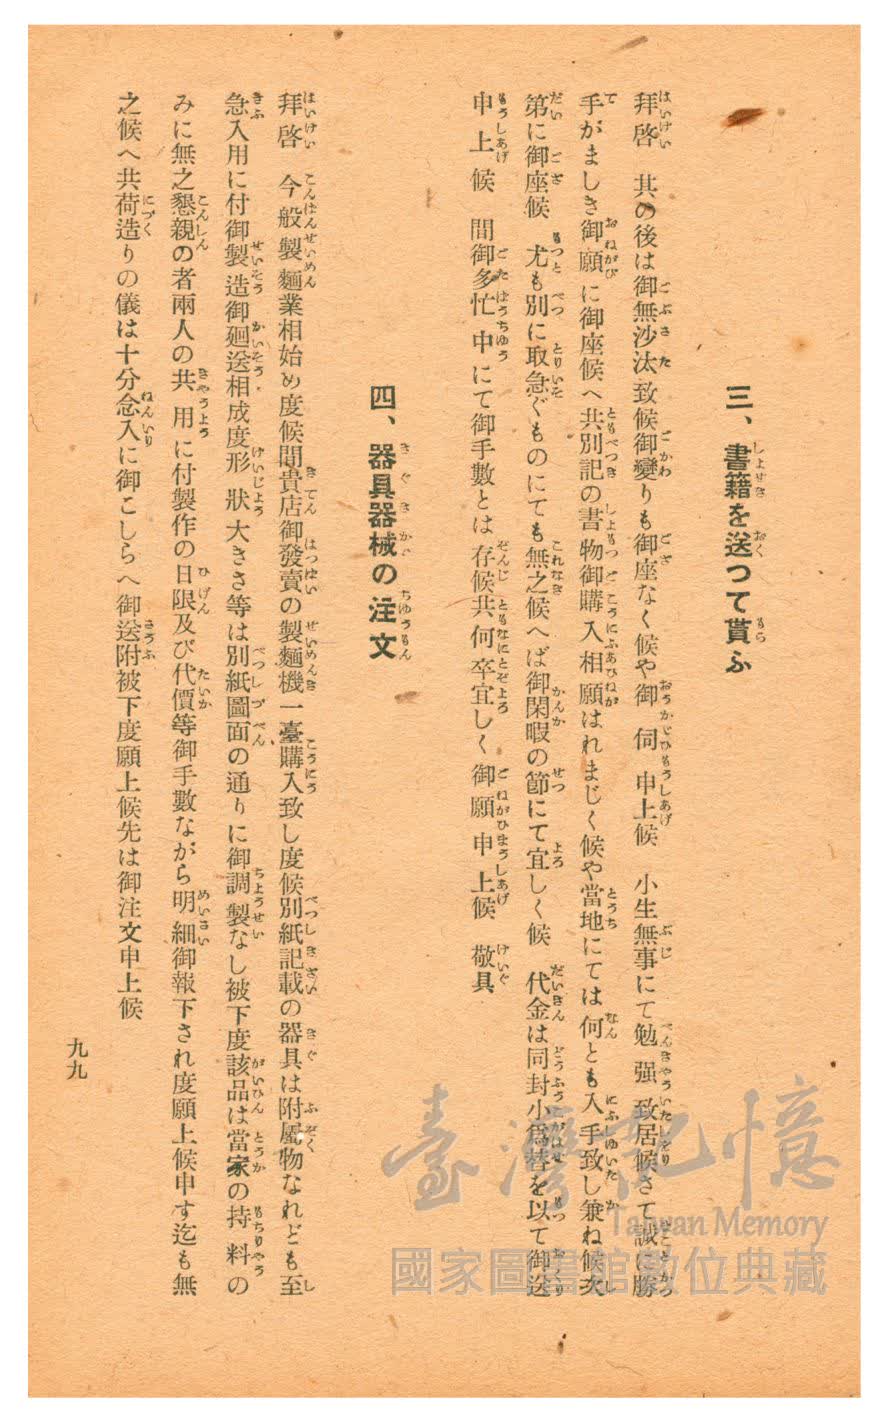 三、書籍を送つて貰ふ
拜啓　其の後は御無沙汰致候御變りも御座なく候や御伺申上候　小生無事にて勉强致居候さて誠に勝
手がましき御願に御座候へ共別記の書物御購入相願はれまじく候や當地にては何とも入手致し兼ね候次
第に御座候　尤も別に取急ぐものにても無之候へば御閑暇の節にて宜しく候　代金は同封小爲替を以て御送
申上候　間御多忙中にて御手數とは存候共何卒宜しく御願申上候　敬具
四、器具器械の注文
拜啓　今般製麵業相始め度候間貴店御發賣の製麵機一臺購入致し度候別紙記載の器具は附屬物なれども至
急入用に付御製造御廻送相成度形狀大きさ等は別紙圖面の通りに御調製なし被下度該品は當家の持料の
みに無之懇親の者兩人の共用に付製作の日限及び代價等御手數ながら明細御報下され度願上候申す迄も無
之候へ共荷造りの儀は十分念入に御こしらへ御送附被下度願上候先は御注文申上候
九九
臺灣記憶
Taiwan Memory
國家圖書館數位典藏